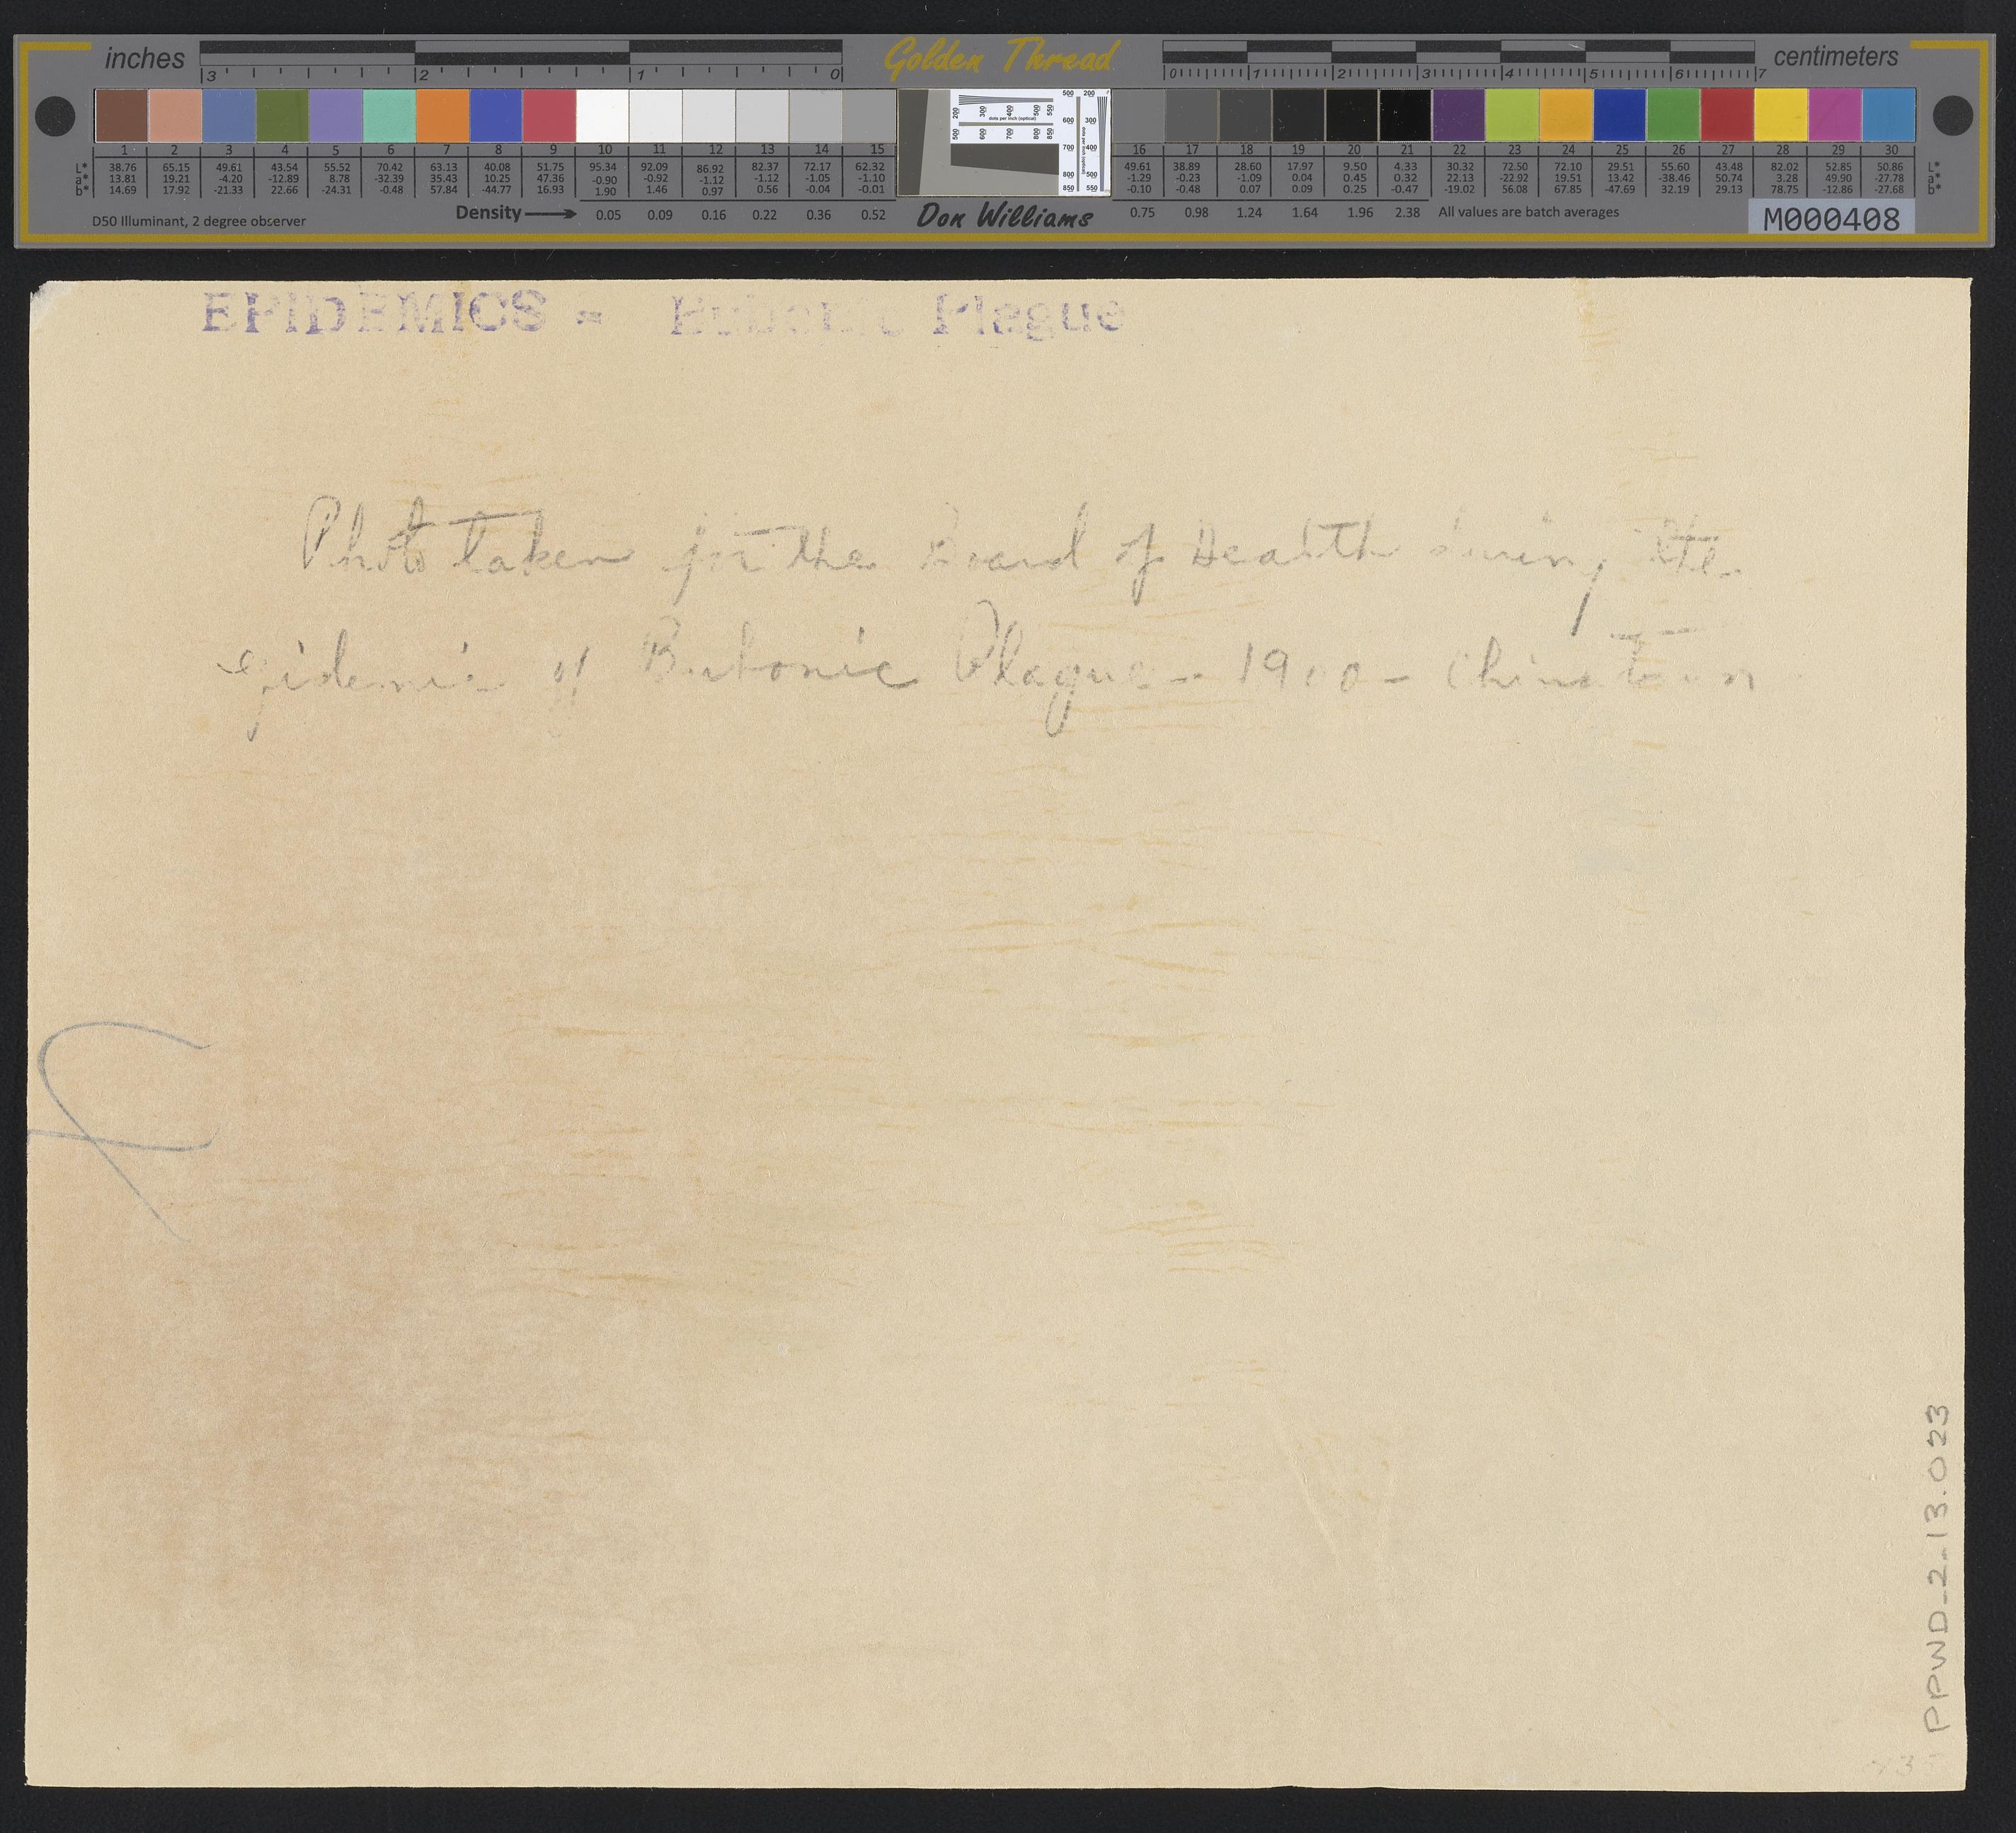 inches 3 2 1 0 Golden Thread 0 1 2 3 4 5 6 7 centimeters
200 300 400 500 550
dots per inch (optical)
500 600 700 800 850
500 200
600 300
700 400
800 500
850 550
1 2 3 4 5 6 7 8 9 10 11 12 13 14 15 16 17 18 19 20 21 22 23 24 25 26 27 28 29 30
L* 38.76 65.15 49.61 43.54 55.52 70.42 63.13 40.08 51.75 95.34 92.09 86.92 82.37 72.17 62.32 49.61 38.89 28.60 17.97 9.50 4.33 30.32 72.50 72.10 29.51 55.60 43.48 82.02 52.85 50.86 L*
a* 13.81 19.21 -4.20 -12.89 8.78 -32.39 35.43 10.25 47.36 -0.90 -0.92 -1.12 -1.12 -1.05 -1.10 -1.29 -0.23 -1.09 0.04 0.45 0.32 22.13 -22.92 19.51 13.42 -38.46 50.74 3.28 49.90 -27.78 a*
b* 14.69 17.92 -21.33 22.66 -24.31 -0.48 57.84 -44.77 16.93 1.90 1.46 0.97 0.56 -0.04 -0.01 -0.10 -0.48 0.07 0.09 0.25 -0.47 -19.02 56.08 67.85 -47.69 32.19 29.13 78.75 -12.86 -27.68 b*
D50 Illuminant, 2 degree observer Density 0.05 0.09 0.16 0.22 0.36 0.52 Don Williams 0.75 0.98 1.24 1.64 1.96 2.38 All values are batch averages M000408
EPIDEMICS = Bubonic Plague
Photo taken for the Board of Health during the
epidemic of Bubonic Plague - 1900 - Chinatown
PPWD_2_13.023